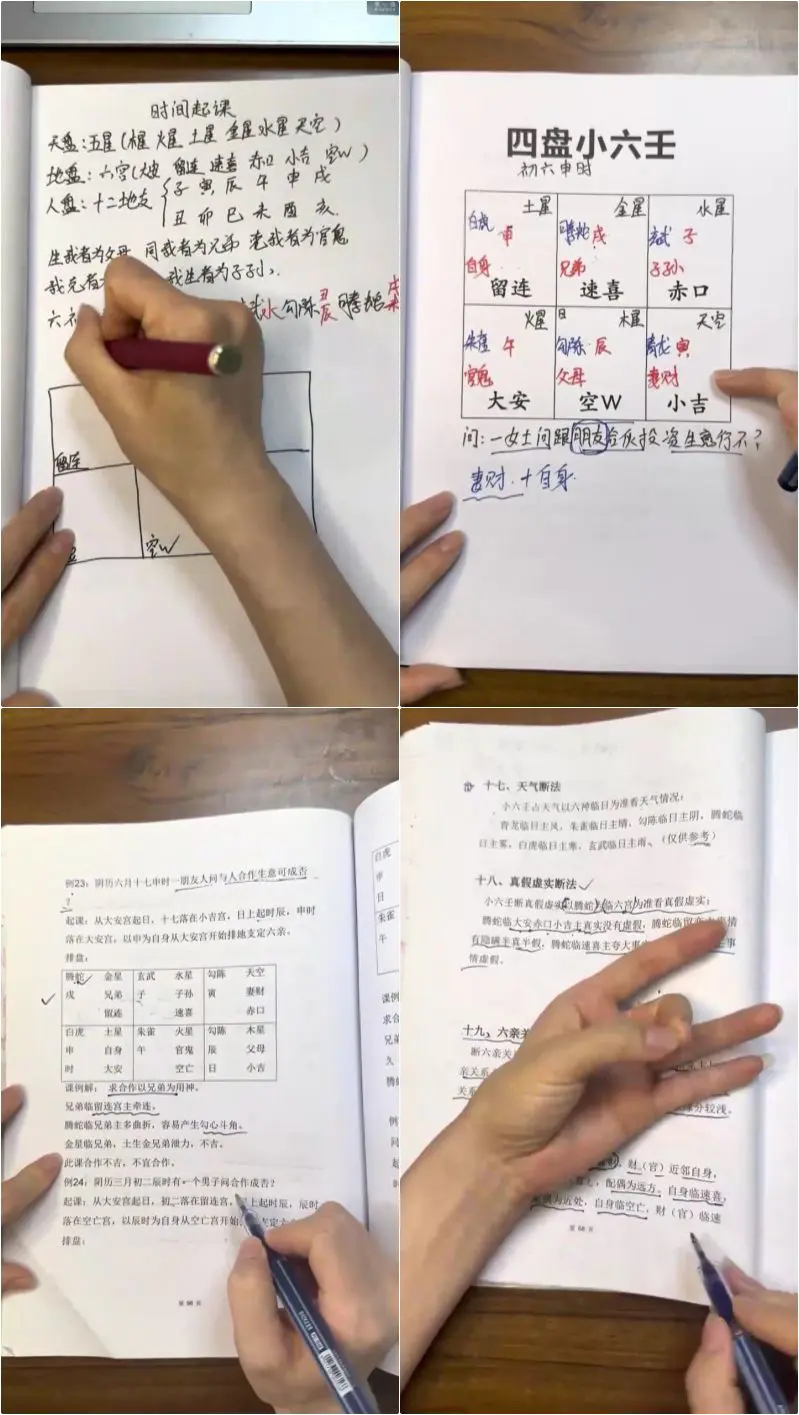 时间起课
天盘:五星(木星 火星 土星 金星 水星 天空)
地盘:六宫(大安 留连 速喜 赤口 小吉 空W)
人盘:十二地支
子 寅 辰 午 申 戌
丑 卯 巳 未 酉 亥
生我者为父母 同我者为兄弟 克我者为官鬼
我克者 我生者为子孙
六 水 勾陈 丑辰 腾蛇
留连
空W
四盘小六壬
初六申时
土星 金星 水星
白虎 申 腾蛇 戌 玄武 子
自身 兄弟 子孙
留连 速喜 赤口
火星 日 木星 天空
朱雀 午 勾陈 辰 青龙 寅
官鬼 父母 妻财
大安 空W 小吉
问:一女士问跟朋友合伙投资生意行不?
妻财 + 自身
例23:阴历六月十七申时一朋友人问与人合作生意可成否
?
起课:从大安宫起日,十七落在小吉宫,日上起时辰,申时
落在大安宫,以申为自身从大安宫开始排地支定六亲。
排盘:
腾蛇 金星 玄武 水星 勾陈 天空
戌 兄弟 子 子孙 寅 妻财
留连 速喜 赤口
白虎 土星 朱雀 火星 勾陈 木星
申 自身 午 官鬼 辰 父母
时 大安 空亡 日 小吉
课例解:求合作以兄弟为用神。
兄弟临留连宫主牵连。
腾蛇临兄弟主多曲折,容易产生勾心斗角。
金星临兄弟,土生金兄弟泄力,不吉。
此课合作不吉,不宜合作。
例24:阴历三月初二辰时有一个男子问合作成否?
起课:从大安宫起日,初二落在留连宫,日上起时辰,辰时
落在空亡宫,以辰时为自身从空亡宫开始 定六
排盘:
第 页
白虎
申
日
朱雀
午
课例
求合
兄弟
久
腾蛇
例
问
起
时
十七、天气断法
小六壬占天气以六神临日为准看天气情况:
青龙临日主风,朱雀临日主晴,勾陈临日主阴,腾蛇临
日主雾,白虎临日主寒,玄武临日主雨。(仅供参考)
十八、真假虚实断法
小六壬断真假虚实以腾蛇临六宫为准看真假虚实:
腾蛇临大安赤口小吉主真实没有虚假,腾蛇临留连 事情
有隐瞒主真半假,腾蛇临速喜主夸大事 主事
情虚假。
十九、六亲关
断六亲关
亲关系
关系 缘分较浅。
财(官)近邻自身,
配偶为远方,自身临速喜,
偶为近处,自身临空亡,财(官)临速
第 68 页